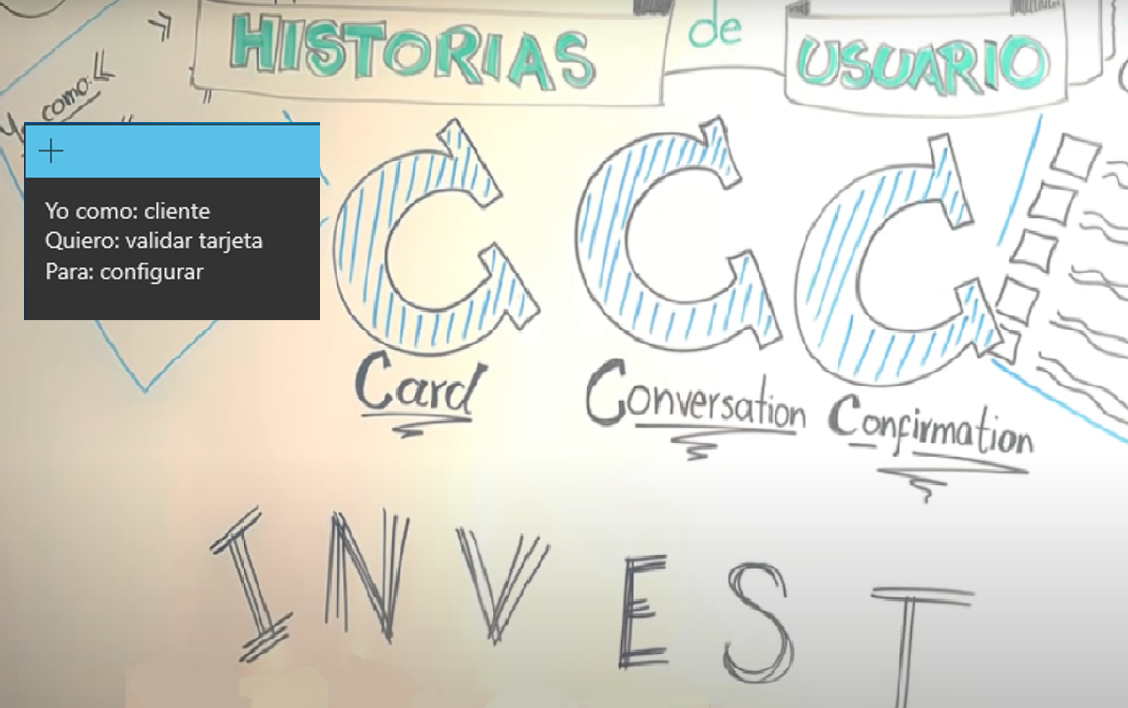 HISTORIAS de USUARIO
Yo como:
Yo como: cliente
Quiero: validar tarjeta
Para: configurar
C C C
Card Conversation Confirmation
INVEST